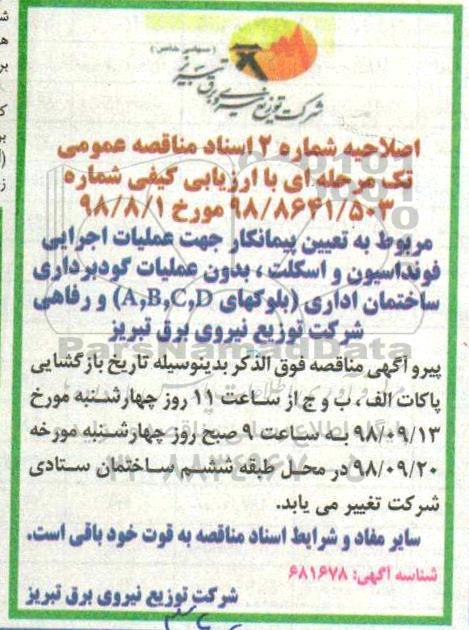 (سهامی خاص)
شرکت توزیع نیروی برق تبریز
اصلاحیه شماره ۲ اسناد مناقصه عمومی
تک مرحله ای با ارزیابی کیفی شماره
۹۸/۸۶۴۱/۵۰۳ مورخ ۹۸/۸/۱
مربوط به تعیین پیمانکار جهت عملیات اجرایی
فونداسیون و اسکلت ، بدون عملیات گودبرداری
ساختمان اداری (بلوکهای A,B,C,D) و رفاهی
شرکت توزیع نیروی برق تبریز
پیرو آگهی مناقصه فوق الذکر بدینوسیله تاریخ بازگشایی
پاکات الف ، ب و ج از ساعت ۱۱ روز چهارشنبه مورخ
۹۸/۰۹/۱۳ به ساعت ۹ صبح روز چهارشنبه مورخه
۹۸/۰۹/۲۰ در محل طبقه ششم ساختمان ستادی
شرکت تغییر می یابد.
سایر مفاد و شرایط اسناد مناقصه به قوت خود باقی است.
شناسه آگهی: ۶۸۱۶۷۸
شرکت توزیع نیروی برق تبریز
ParsNamadData